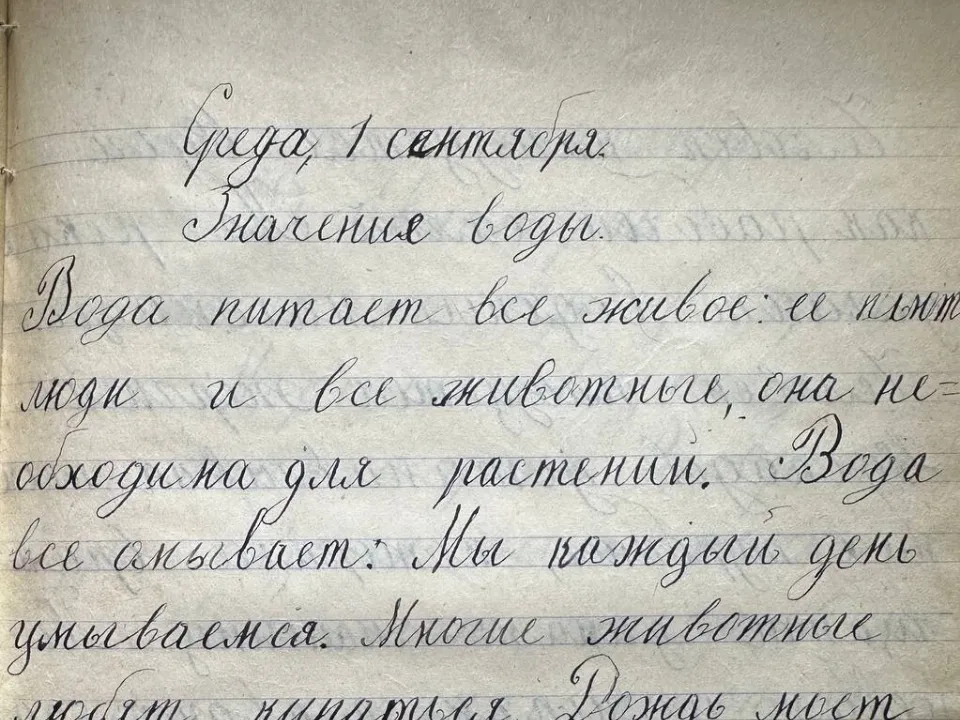 Среда, 1 сентября.
Значение воды.
Вода питает все живое: ее пьют
люди и все животные, она не=
обходима для растений. Вода
все омывает: Мы каждый день
умываемся. Многие животные
любят купаться Дождь моет